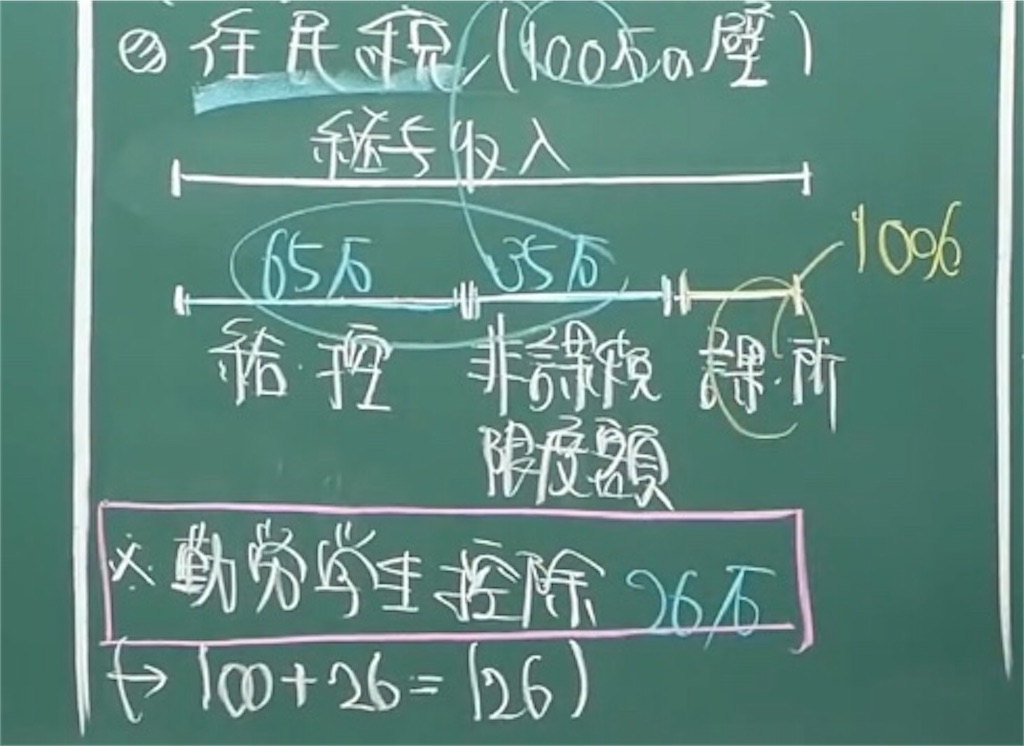 住民税(100万の壁)
給与収入
65万 35万 10%
給・控 非課税 課・所
限度額
※勤労学生控除 26万
(→100+26=126)